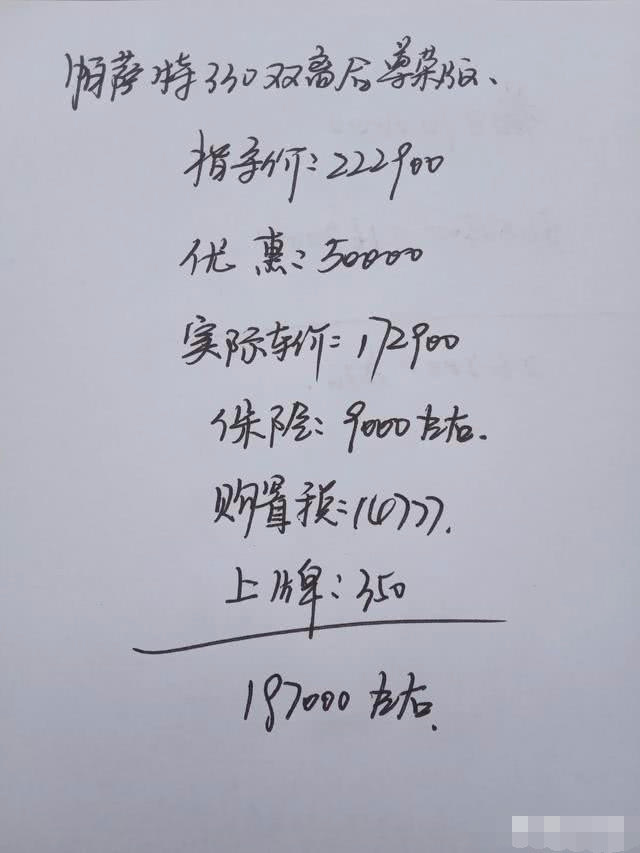 帕萨特330双离合尊荣版、
指导价：222900
优惠：50000
实际车价：172900
保险：9000左右.
购置税：14777.
上牌：350
197000左右.